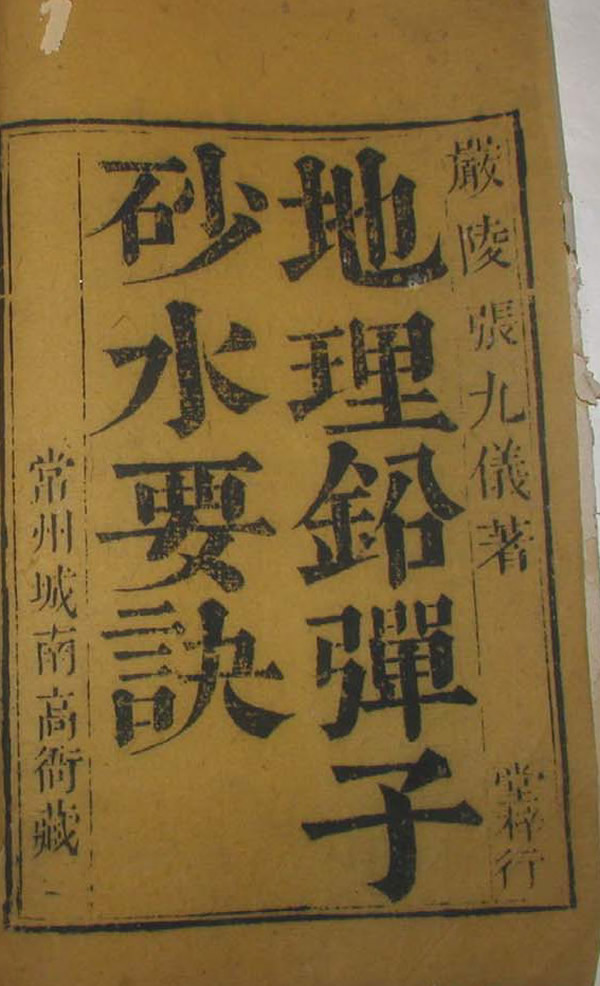 嚴陵張九儀著
堂梓行
地理鉛彈子
砂水要訣
常州城南高衙藏